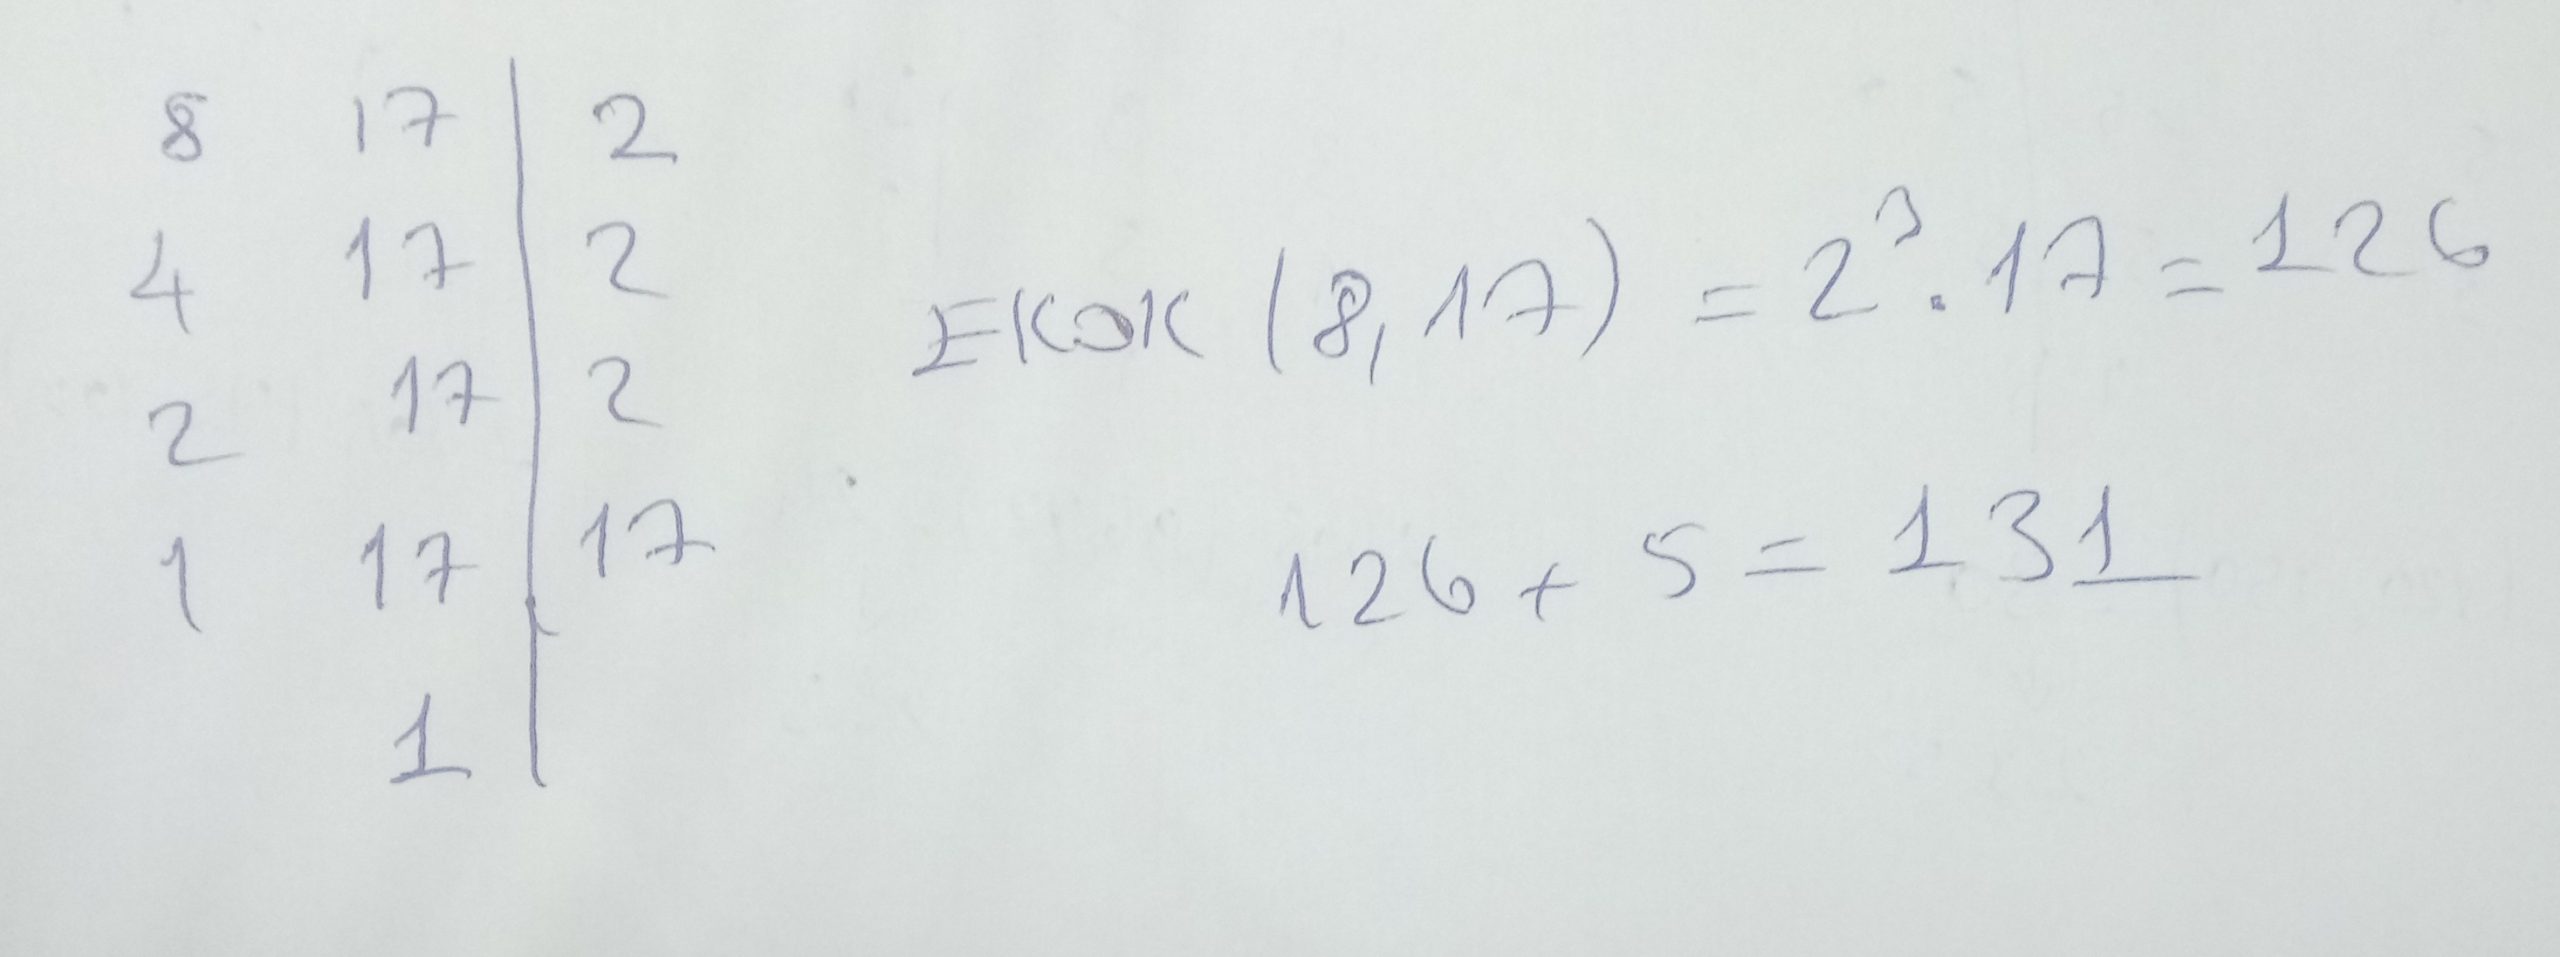 8 17 | 2
4 17 | 2
2 17 | 2
1 17 | 17
1
EKOK (8, 17) = 2³ . 17 = 126
126 + 5 = 131